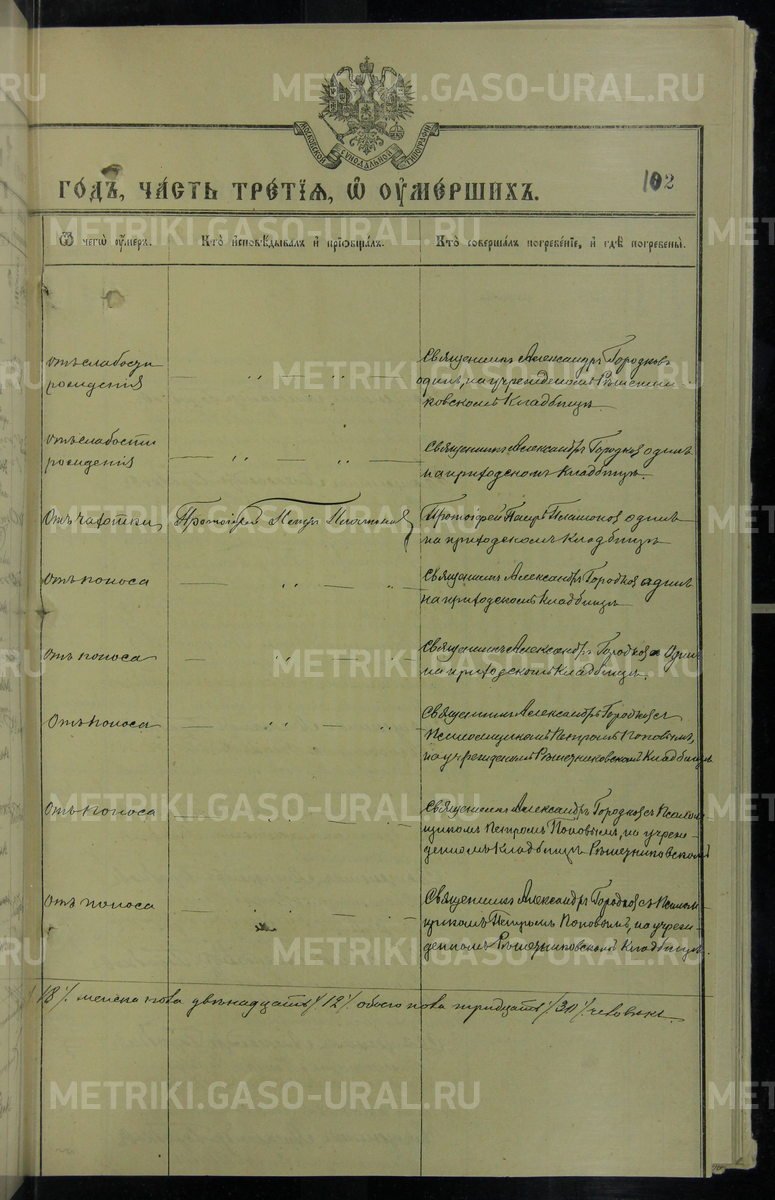 МОСКОВСКОЙ СѴНОДАЛЬНОЙ ТИПОГРАФІИ
102
ГОДЪ, ЧАСТЬ ТРЕТІЯ, Ѿ ОУМЕРШИХЪ.
Ѿ чегѡ оумеръ.
Кто исповѣдывалъ и пріобщалъ.
Кто совершалъ погребеніе, и гдѣ погребены.
отъ слабости
рожденія
Священникъ Александръ Городковъ
одинъ, на учрежденомъ
ковскомъ Кладбищѣ
отъ слабости
рожденія
Священникъ Александръ Городков одинъ
на приходскомъ Кладбищѣ.
Отъ чахотки
Протоіерей Петръ
Протоіерей одинъ
на приходскомъ кладбищѣ
Отъ поноса
Священникъ Александръ Городков адинъ
на приходскомъ кладбищѣ
Отъ поноса
Священникъ Александръ Городков Одинъ
на приходскомъ Кладбищѣ.
Отъ поноса
Священникъ Александръ Городков съ
Псаломщикомъ Петромъ Поповымъ,
на учрежденомъ Рѣшетниковскомъ Кладбищѣ
Отъ поноса
Священникъ Александръ Городков съ Псалом-
щикомъ Петромъ Поповымъ, на учреж-
деномъ Кладбищѣ Рѣшетниковскомъ
Отъ поноса
Священникъ Александръ Городков съ Псалом-
щикомъ Петромъ Поповымъ, на учреж-
денномъ Рѣшетниковскомъ Кладбищѣ.
18/. женска пола двѣнадцать /12/. обоего пола тридцать /30/. человѣкъ.
METRIKI.GASO-URAL.RU